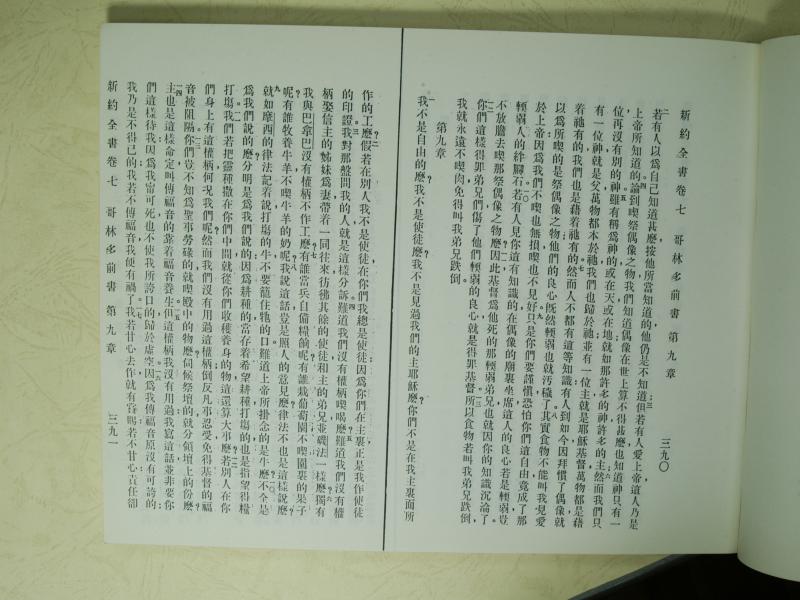 新約全書卷七　哥林多前書　第九章　三九〇
若有人以爲自己知道甚麽按他所當知道的他仍是不知道但若有人愛上帝這人乃是
上帝所知道的論到喫祭偶像之物我們知道偶像在世上算不得甚麽也知道神只有一
位再沒有別的神雖有稱爲神的或在天或在地就如那許多的神許多的主然而我們只
有一位神就是父萬物都本於祂我們也歸於祂並有一位主就是耶穌基督萬物都是藉
着祂有的我們也是藉着祂有的然而人不都有這等知識有人到如今因拜慣了偶像就
以爲所喫的是祭偶像之物他們的良心旣然輭弱也就汚穢了其實食物不能叫我見愛
於上帝因爲我們不喫也無損喫也不見好只是你們要謹愼恐怕你們這自由竟成了那
輭弱人的絆腳石若有人見你這有知識的在偶像的廟裏坐席這人的良心若是輭弱豈
不放膽去喫那祭偶像之物麽因此基督爲他死的那輭弱弟兄也就因你的知識沉淪了
你們這樣得罪弟兄們傷了他們輭弱的良心就是得罪基督所以食物若叫我弟兄跌倒
我就永遠不喫肉免得叫我弟兄跌倒
第九章
我不是自由的麽我不是使徒麽我不是見過我們的主耶穌麽你們不是在我主裏面所
作的工麽假若在別人我不是使徒在你們我總是使徒因爲你們在主裏正是我作使徒
的印證我對那盤問我的人就是這樣分訴難道我們沒有權柄喫喝麽難道我們沒有權
柄娶信主的姊妹爲妻帶着一同往來彷彿其餘的使徒和主的弟兄並磯法一樣麽獨有
我與巴拿巴沒有權柄不作工麽有誰當兵自備糧餉呢有誰栽葡萄園不喫園裏的果子
呢有誰牧養牛羊不喫牛羊的奶呢我說這話豈是照人的意見麽律法不也是這樣說麽
就如摩西的律法記着說打塲的牛不要籠住牠的口難道上帝所掛念的是牛麽不全是
爲我們說的麽分明是爲我們說的因爲耕種的當存着希望耕種打塲的也是指望得糧
打塲我們若把靈種撒在你們中間就從你們收穫養身的物還算大事麽若別人在你
們身上有這權柄何况我們呢然而我們沒有用過這權柄倒反凡事忍受免得基督的福
音被阻隔你們豈不知爲聖事勞碌的就喫殿中的物麽伺候祭壇的就分領壇上的份麽
主也是這樣命定叫傳福音的靠着福音養生但這權柄我沒有用過我寫這話並非要你
們這樣待我因爲我甯可死也不使我所誇口的歸於虛空因爲我傳福音原沒有可誇的
我乃是不得已的我若不傳福音我便有禍了我若甘心去作就有賞賜若不甘心責任卻
新約全書卷七　哥林多前書　第九章　三九一